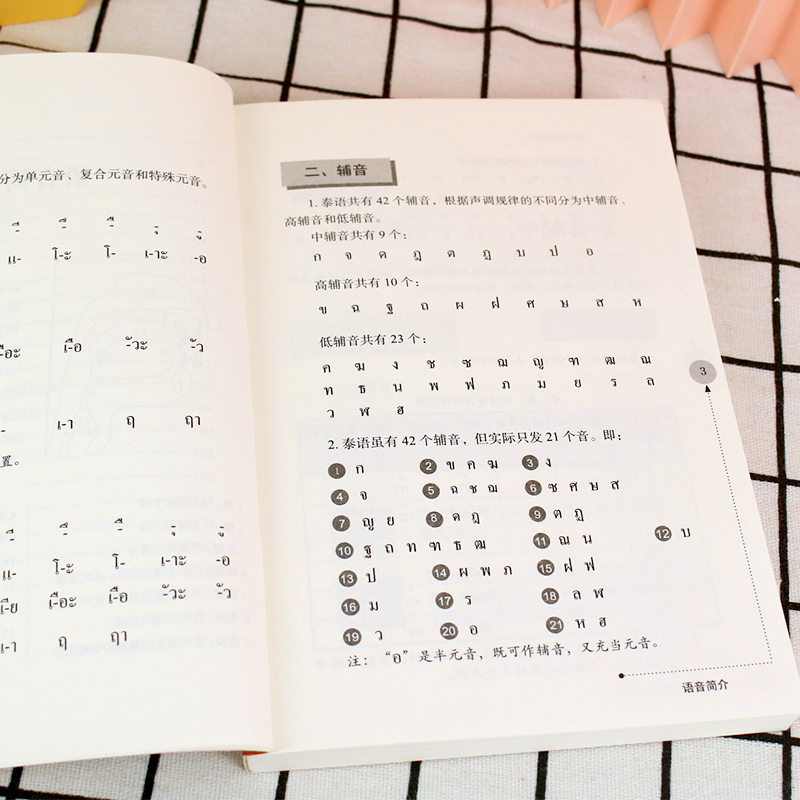 分为单元音、复合元音和特殊元音。
แ- โ-ะ โ- เ-าะ -อ
เ-ือ -ัวะ -ัว
เ-า ฤ ฤา
置。
แ- โ-ะ โ- เ-าะ -อ
เ-ีย เ-ือะ เ-ือ -ัวะ -ัว
เ-า ฤ ฤา
二、辅音
1. 泰语共有 42 个辅音，根据声调规律的不同分为中辅音、
高辅音和低辅音。
中辅音共有 9 个：
ก จ ด ฎ ต ฏ บ ป อ
高辅音共有 10 个：
ข ฉ ฐ ถ ผ ฝ ศ ษ ส ห
低辅音共有 23 个：
ค ฆ ง ช ซ ฌ ญ ฑ ฒ ณ
ท ธ น พ ฟ ภ ม ย ร ล
ว ฬ ฮ
3
2. 泰语虽有 42 个辅音，但实际只发 21 个音。即：
1 ก 2 ข ค ฆ 3 ง
4 จ 5 ฉ ช ฌ 6 ซ ศ ษ ส
7 ญ ย 8 ด ฎ 9 ต ฏ
10 ฐ ถ ท ฑ ธ ฒ 11 ณ น 12 บ
13 ป 14 ผ พ ภ 15 ฝ ฟ
16 ม 17 ร 18 ล ฬ
19 ว 20 อ 21 ห ฮ
注：“อ”是半元音，既可作辅音，又充当元音。
语音简介